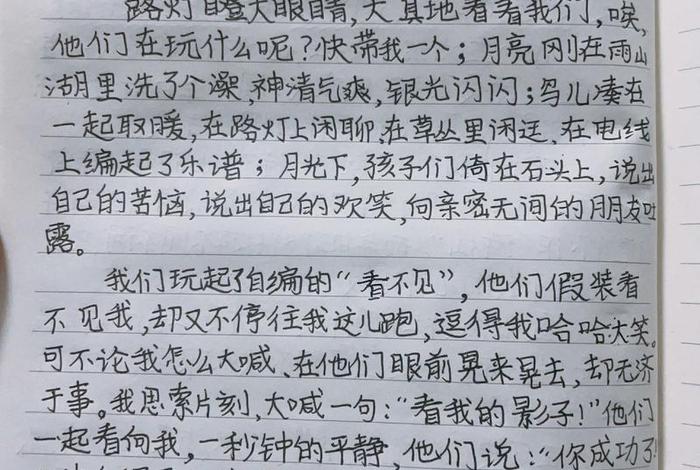 路灯瞪大眼睛,天真地看着我们,唉,
他们在玩什么呢?快带我一个;月亮刚在雨山
湖里洗了个澡,神清气爽,银光闪闪;鸟儿凑在
一起取暖,在路灯上闲聊,在草丛里闲逛,在电线
上编起了乐谱;月光下,孩子们倚在石头上,说出
自己的苦恼,说出自己的欢笑,向亲密无间的朋友吐
露。
我们玩起了自编的“看不见”,他们假装看
不见我,却又不停往我这儿跑,逗得我哈哈大笑。
可不论我怎么大喊、在他们眼前晃来晃去,却无济
于事。我思索片刻,大喊一句:“看我的影子!”他们
一起看向我,一秒钟的平静,他们说:“你成功了!